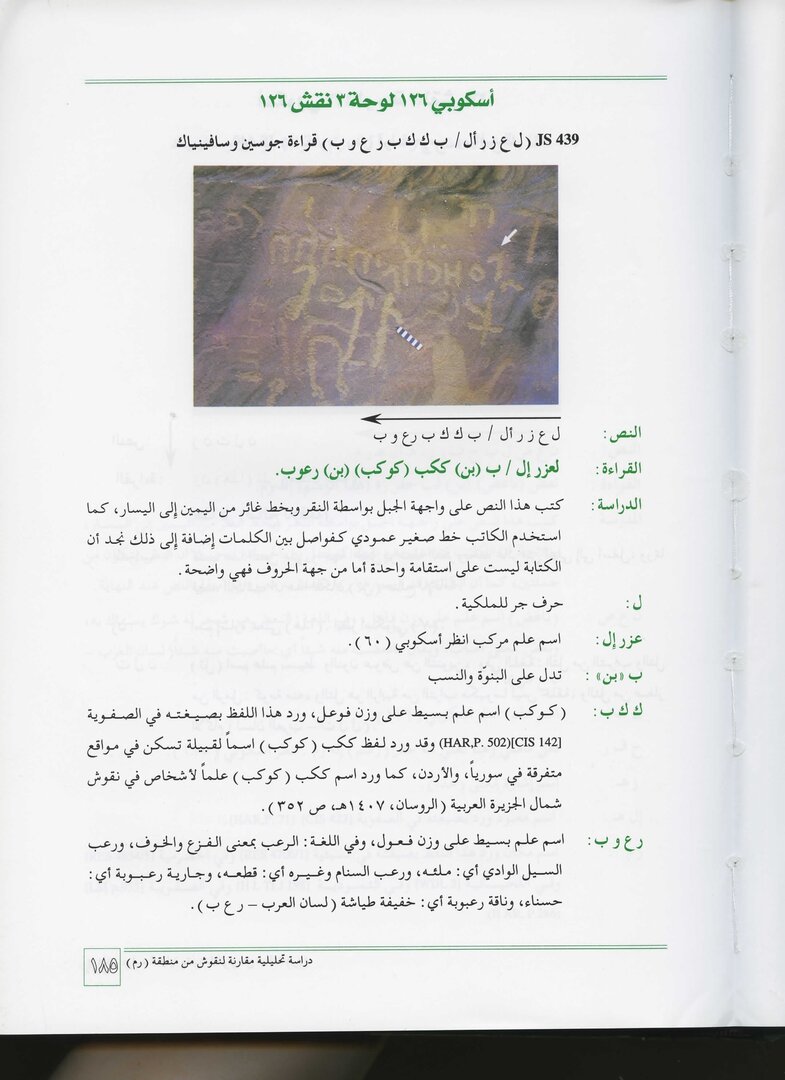 أسكوبي ١٢٦ لوحة ٣ نقش ١٢٦
JS 439 (ل ع ز ر أ ل / ب ك ك ب ر ع و ب) قراءة جوسين وسافينياك
النص: ل ع ز ر أ ل / ب ك ك ب ر ع و ب
القراءة: لعزر إل / ب (بن) ككب (كوكب) (بن) رعوب.
الدراسة: كتب هذا النص على واجهة الجبل بواسطة النقر وبخط غائر من اليمين إلى اليسار، كما
استخدم الكاتب خط صغير عمودي كفواصل بين الكلمات إضافة إلى ذلك نجد أن
الكتابة ليست على استقامة واحدة أما من جهة الحروف فهي واضحة.
ل: حرف جر للملكية.
عزر إل: اسم علم مركب انظر أسكوبي (٦٠).
ب «بن»: تدل على البنوّة والنسب
ك ك ب: (كوكب) اسم علم بسيط على وزن فوعل، ورد هذا اللفظ بصيغته في الصفوية
[CIS 142](HAR,P. 502) وقد ورد لفظ ككب (كوكب) اسماً لقبيلة تسكن في مواقع
متفرقة في سورياً، والأردن، كما ورد اسم ككب (كوكب) علماً لأشخاص في نقوش
شمال الجزيرة العربية (الروسان، ١٤٠٧هـ، ص ٣٥٢).
ر ع و ب: اسم علم بسيط على وزن فعول، وفي اللغة: الرعب بمعنى الفزع والخوف، ورعب
السيل الوادي أي: ملئه، ورعب السنام وغيره أي: قطعه، وجارية رعبوبة أي:
حسناء، وناقة رعبوبة أي: خفيفة طياشة (لسان العرب – ر ع ب).
دراسة تحليلية مقارنة لنقوش من منطقة (رم) ١٨٥